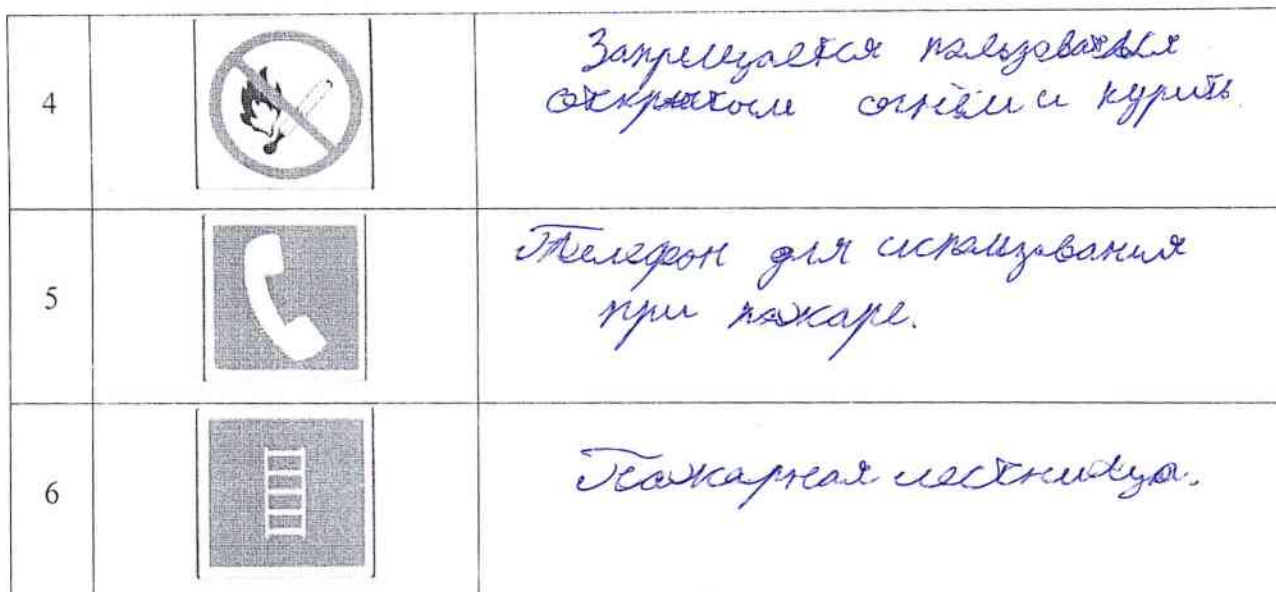 4
Запрещается пользоваться
открытым огнём и курить
5
Телефон для использования
при пожаре.
6
Пожарная лестница.